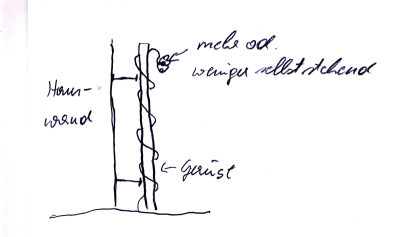 mehr od.
weniger selbststehend
Haus-
wand
Gerüst